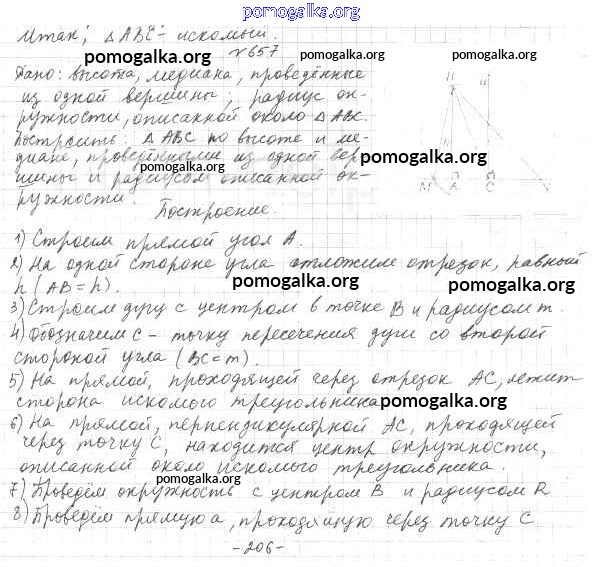 pomogalka.org
Итак, △ABC - искомый.
№657
pomogalka.org pomogalka.org pomogalka.org
Дано: высота, медиана, проведённые
из одной вершины; радиус ок-
ружности, описанной около △ABC.
Построить: △ABC по высоте и ме-
диане, проведёнными из одной вер-
pomogalka.org
pomogalka.org
шины и радиусом описанной ок-
ружности.
M A C
Построение.
1) Строим прямой угол A.
2) На одной стороне угла отложим отрезок, равный
h (AB = h).
pomogalka.org pomogalka.org
3) Строим дугу с центром в точке B и радиусом m.
4) Обозначим C - точку пересечения дуги со второй
стороной угла (BC = m).
5) На прямой, проходящей через отрезок AC, лежит
сторона искомого треугольника
pomogalka.org
6) На прямой, перпендикулярной AC, проходящей
через точку C, находится центр окружности,
описанной около искомого треугольника.
pomogalka.org
7) Проведём окружность с центром B и радиусом R
8) Проведём прямую a, проходящую через точку C
pomogalka.org pomogalka.org
-206-